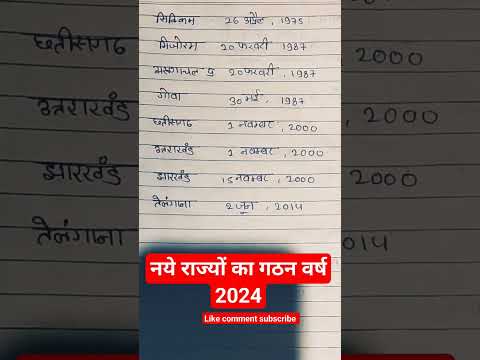 सिक्किम 26 अप्रैल, 1975
मिजोरम 20 फरवरी 1987
अरुणाचल प्र 20 फरवरी, 1987
गोवा 30 मई, 1987
छत्तीसगढ़ 1 नवम्बर, 2000
उत्तराखंड 1 नवम्बर, 2000
झारखंड 15 नवम्बर, 2000
तेलंगाना 2 जून, 2014
नये राज्यों का गठन वर्ष
2024
Like comment subscribe
छत्तीसगढ़
2000
उत्तराखंड
2000
झारखंड
2000
तेलंगाना
2014